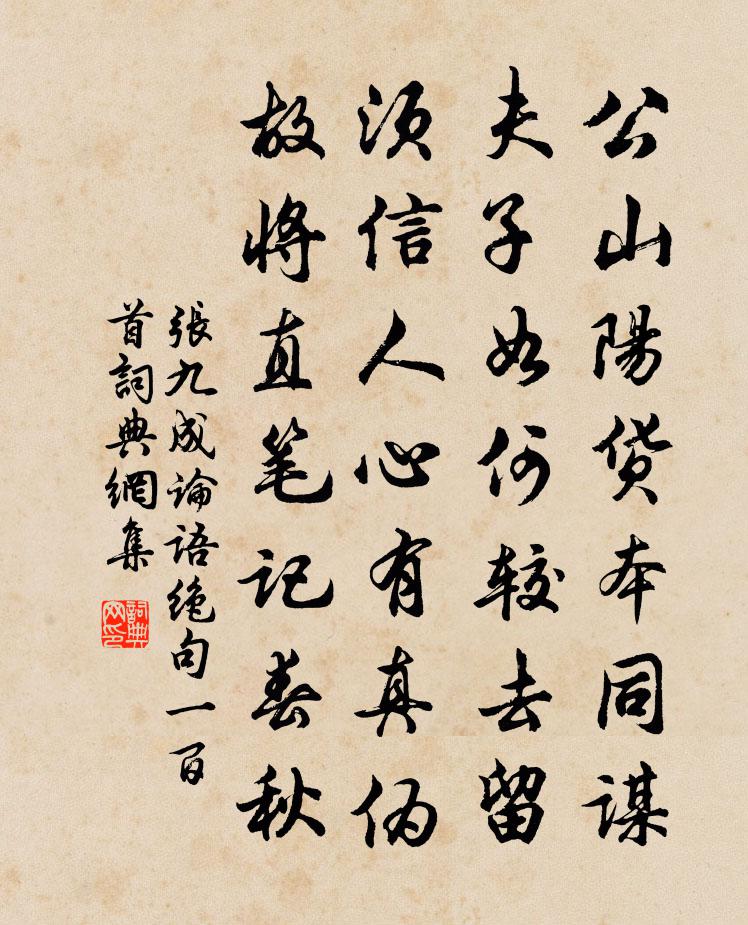 公山陽货本同謀
夫子如何较去留
须信人心有真伪
故将直笔记春秋
張九成論语绝句一百
首詞典網集
詞典网印